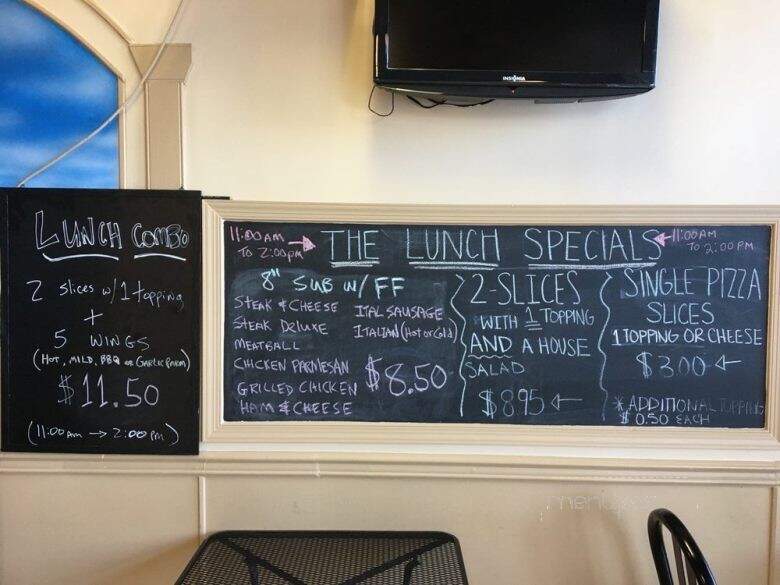 INSIGNIA
LUNCH COMBO
2 slices w/ 1 topping
+
5 WINGS
(HOT, MILD, BBQ or GARLIC PARM)
$11.50
(11:00 am → 2:00 pm)
11:00 AM →
TO 2:00 pm
THE LUNCH SPECIALS
← 11:00 AM
TO 2:00 PM
8" SUB W/ FF
STEAK & CHEESE
STEAK DELUXE
MEATBALL
CHICKEN PARMESAN
GRILLED CHICKEN
HAM & CHEESE
ITAL SAUSAGE
ITALIAN (Hot or Cold)
$8.50
2-SLICES
WITH 1 TOPPING
AND A HOUSE
SALAD
$8.95 ←
SINGLE PIZZA
SLICES
1 TOPPING OR CHEESE
$3.00 ←
* ADDITIONAL TOPPING
$0.50 EACH